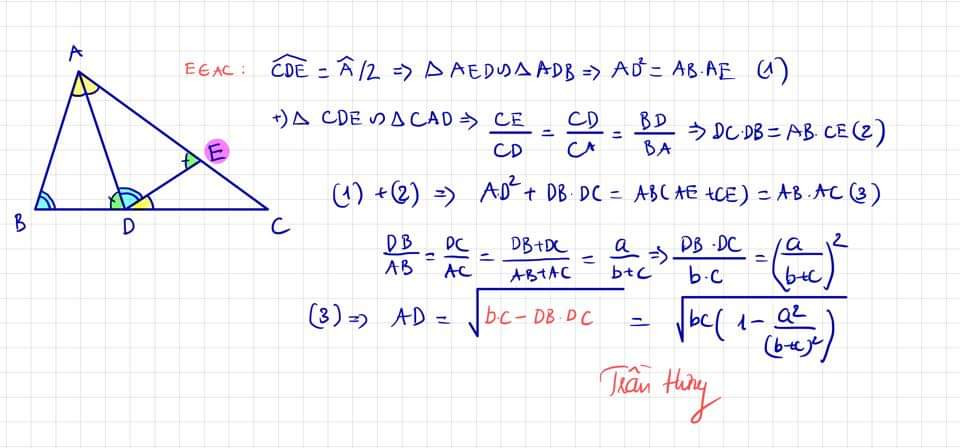 A
B
D
C
E
E∈AC: \widehat{CDE} = \widehat{A}/2 => Δ AED ∽ Δ ADB => AD² = AB.AE (1)
+) Δ CDE ∽ Δ CAD => CE/CD = CD/CA = BD/BA => DC.DB = AB.CE (2)
(1) + (2) => AD² + DB.DC = AB(AE + CE) = AB.AC (3)
DB/AB = DC/AC = (DB+DC)/(AB+AC) = a/(b+c) => DB.DC/b.c = (a/(b+c))²
(3) => AD = √(b.c - DB.DC) = √(bc(1 - a²/(b+c)²))
Trần Hưng